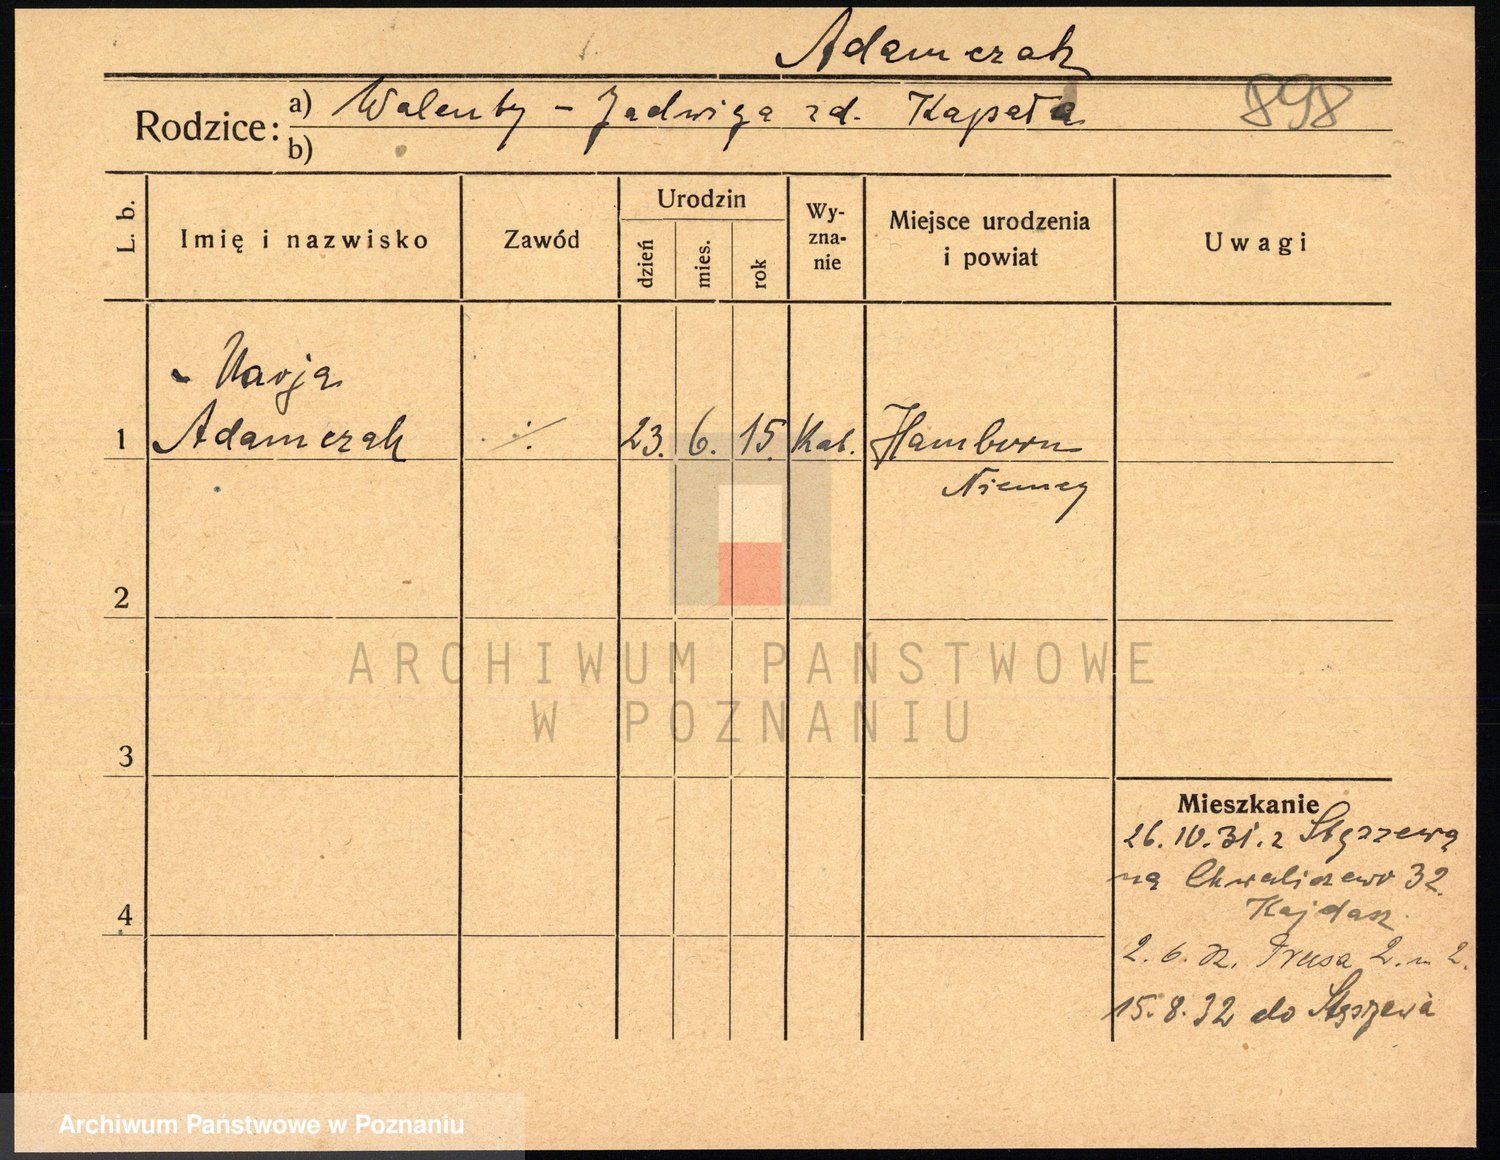 Adamczak
Rodzice:
a) Walenty - Jadwiga zd. Kapała
898
b)
L. b.
Imię i nazwisko
Zawód
Urodzin
dzień
mies.
rok
Wy-
zna-
nie
Miejsce urodzenia
i powiat
Uwagi
- Marja
1 Adamczak ./. 23. 6. 15. Kat. Hamborn
Niemcy
2
ARCHIWUM PAŃSTWOWE
W POZNANIU
3
Mieszkanie
26. IV. 31. z Stęszewa
na Chwaliszewo 32.
Kajdasz.
4
2. 6. 32. Prusa 2. m 2.
15. 8. 32 do Stęszewa
Archiwum Państwowe w Poznaniu